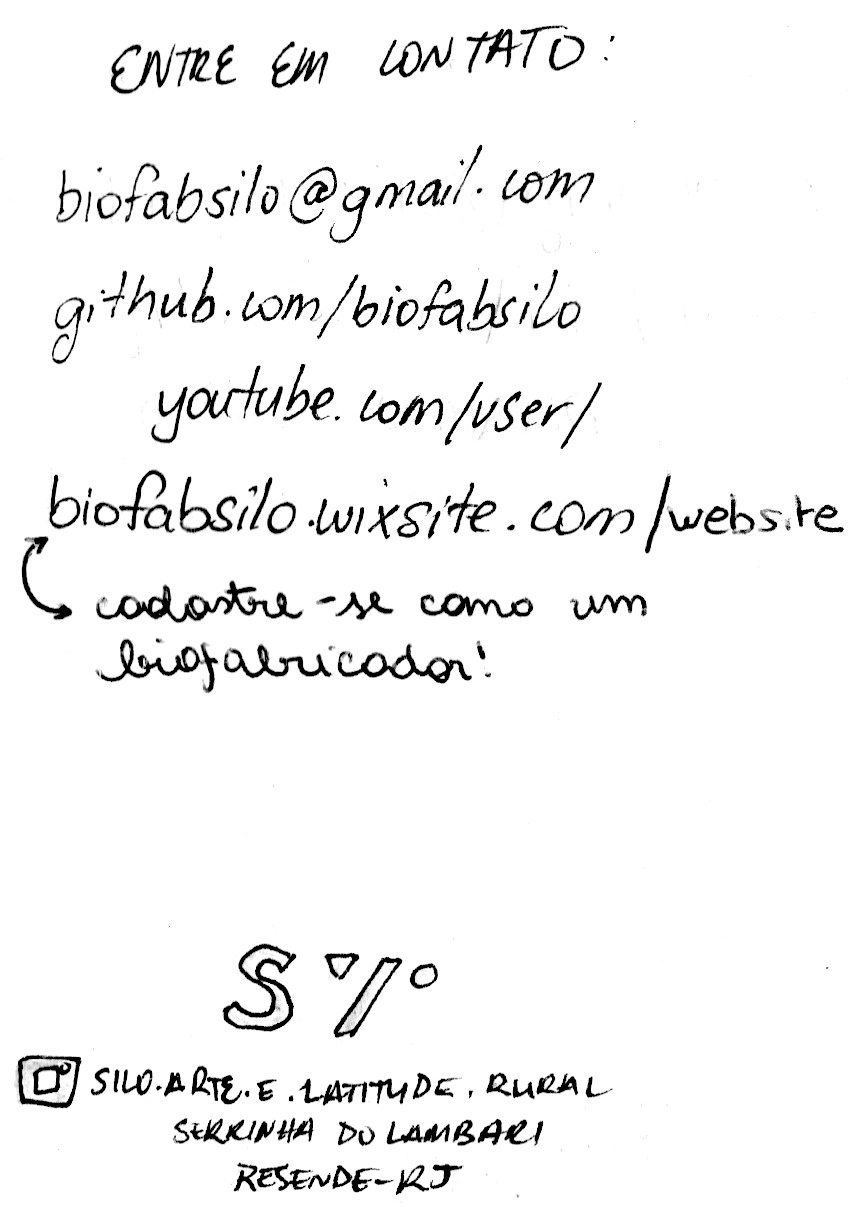 ENTRE EM CONTATO:
biofabsilo@gmail.com
github.com/biofabsilo
youtube.com/user/
biofabsilo.wixsite.com/website
cadastre-se como um
biofabricador!
SILO
SILO.ARTE.E.LATITUDE.RURAL
SERRINHA DO LAMBARI
RESENDE-RJ